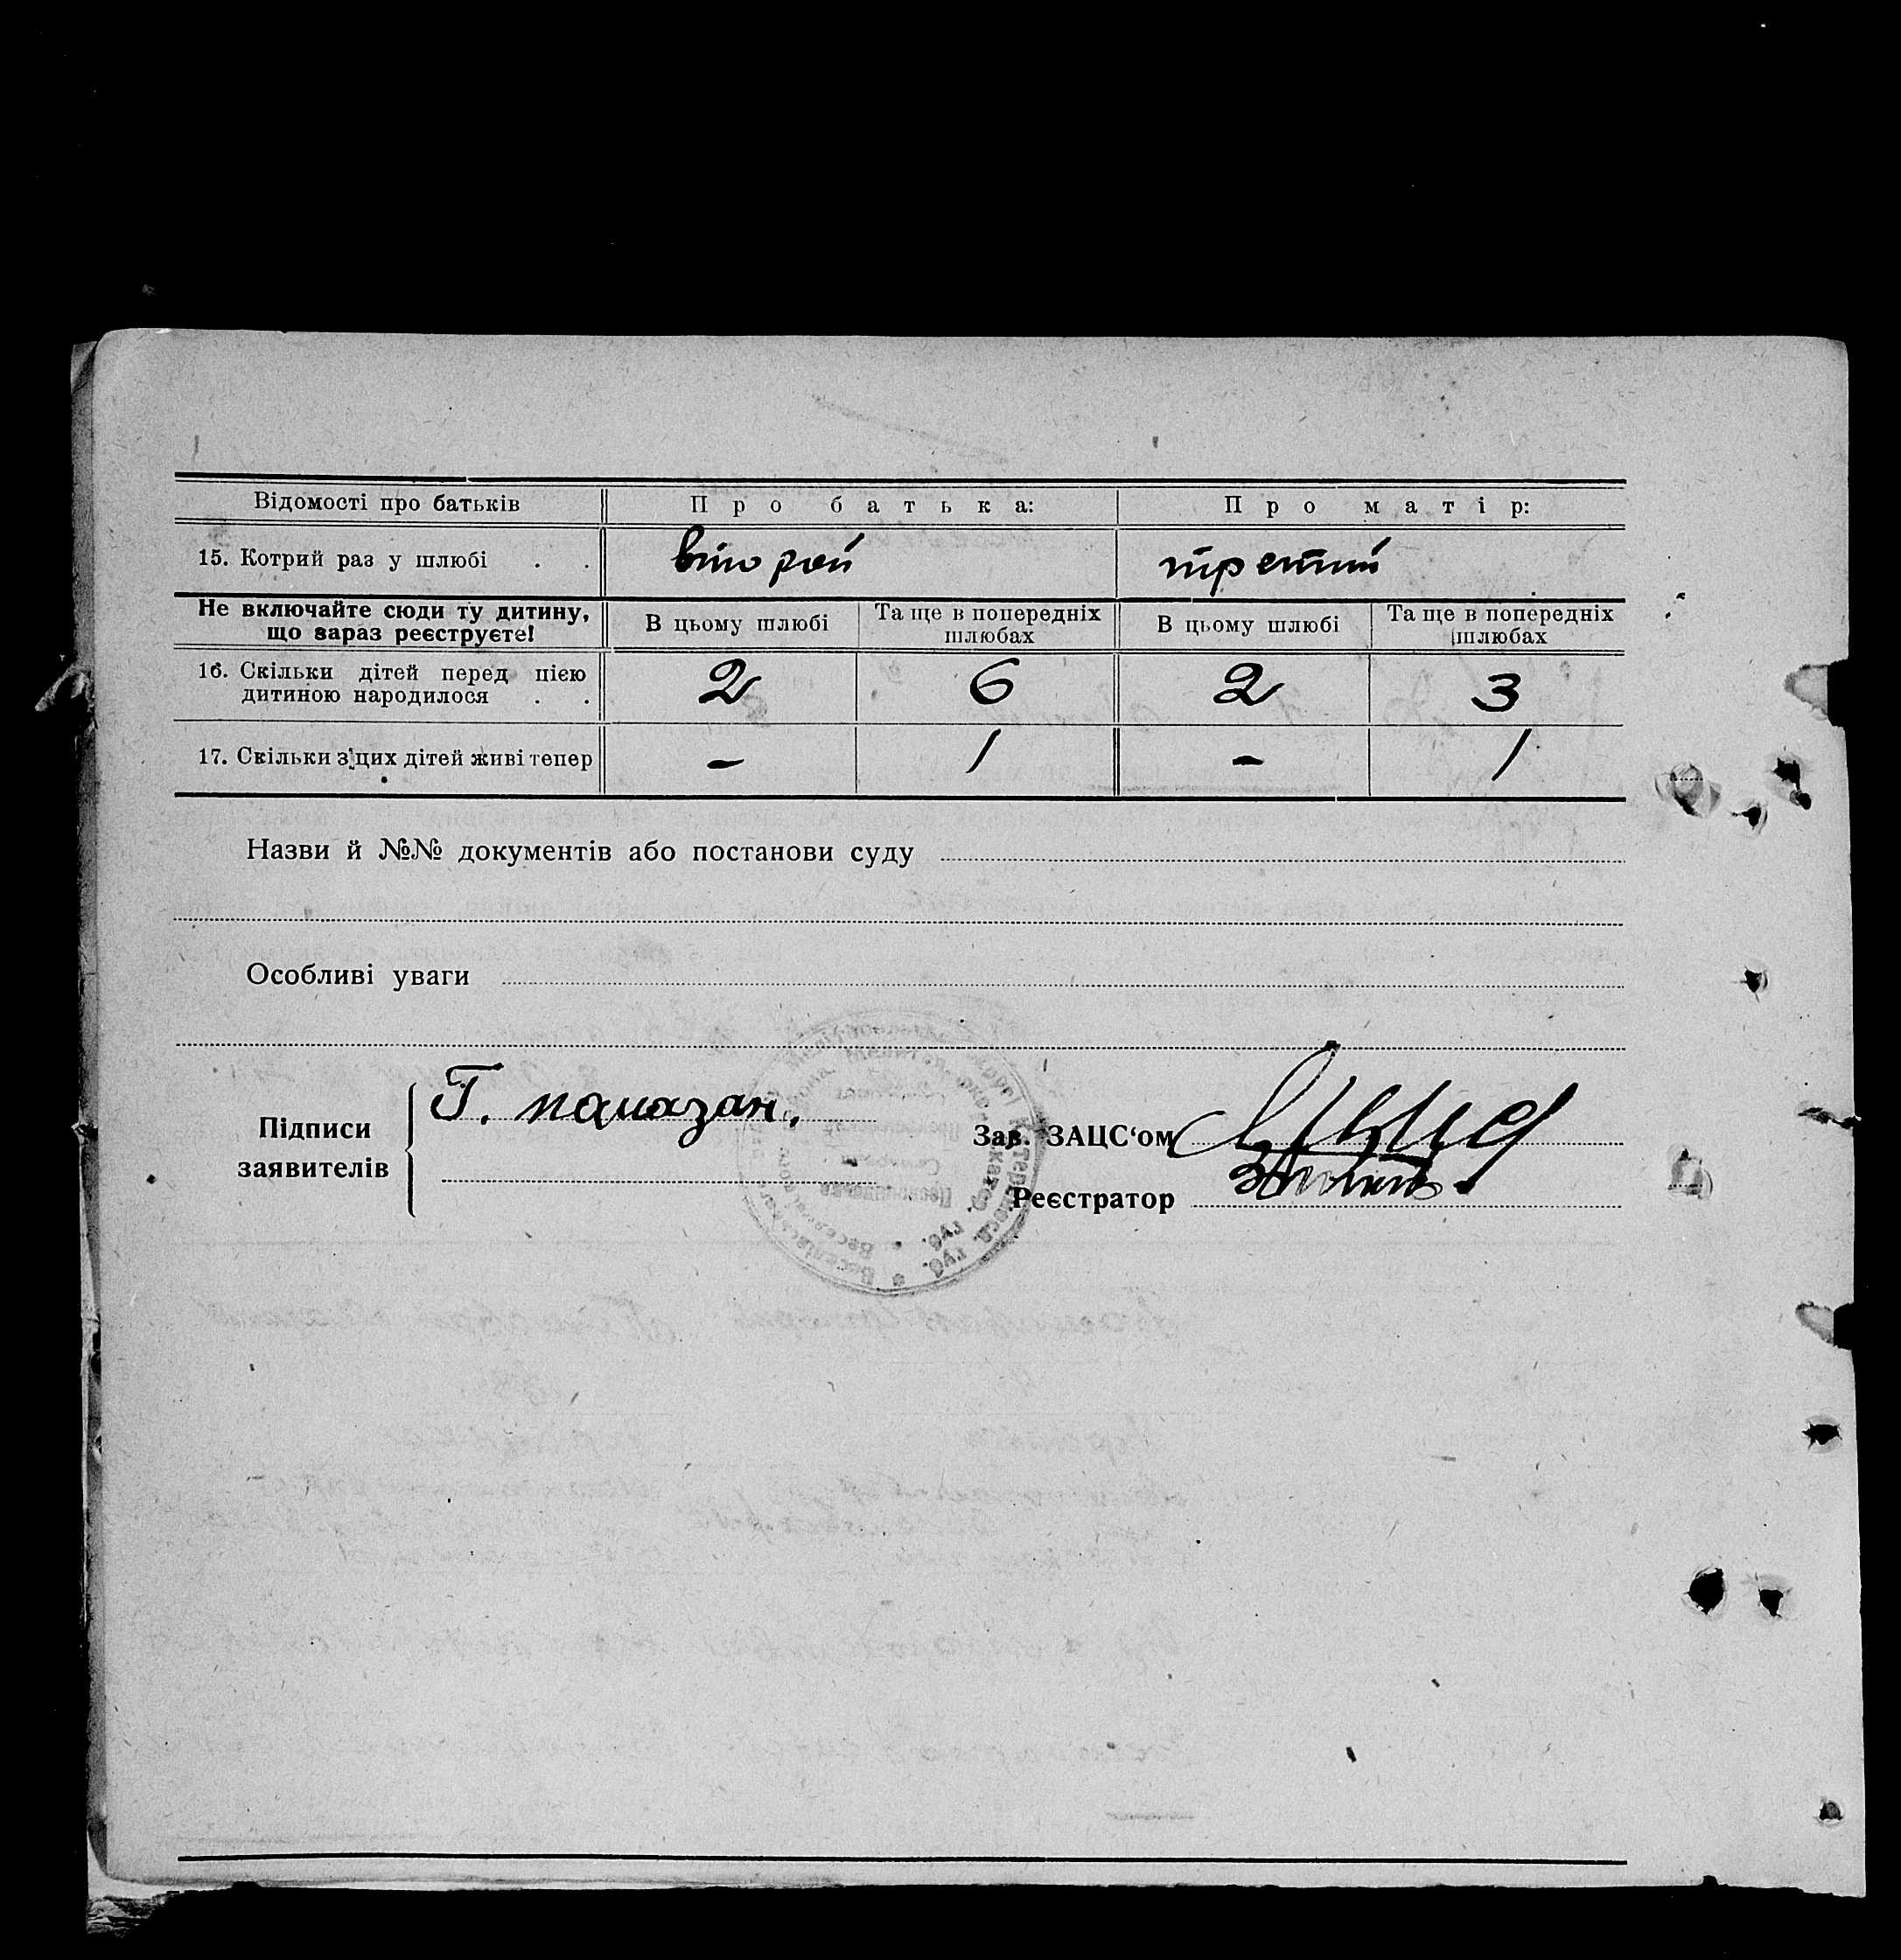 Відомості про батьків Про батька: Про матір:
15. Котрий раз у шлюбі . . второй третий
Не включайте сюди ту дитину, що зараз реєструєте! В цьому шлюбі Та ще в попередніх шлюбах В цьому шлюбі Та ще в попередніх шлюбах
16. Скільки дітей перед цією дитиною народилося . . 2 6 2 3
17. Скільки з цих дітей живі тепер – 1 – 1
Назви й №№ документів або постанови суду
Особливі уваги
Підписи заявителів Г.
Зав. ЗАЦС‘ом
Реєстратор